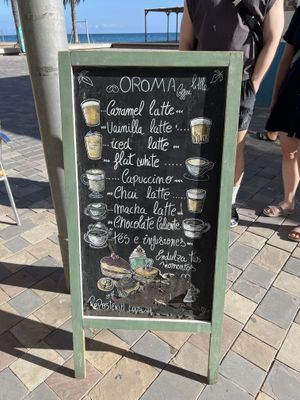 OROMA
Caramel latte
Vainilla latte
iced latte
flat white
Capuccino
Chai latte
macha latte
Chocolate Caliente
tés e infusiones
Endulza tus
momento
Repostería casera